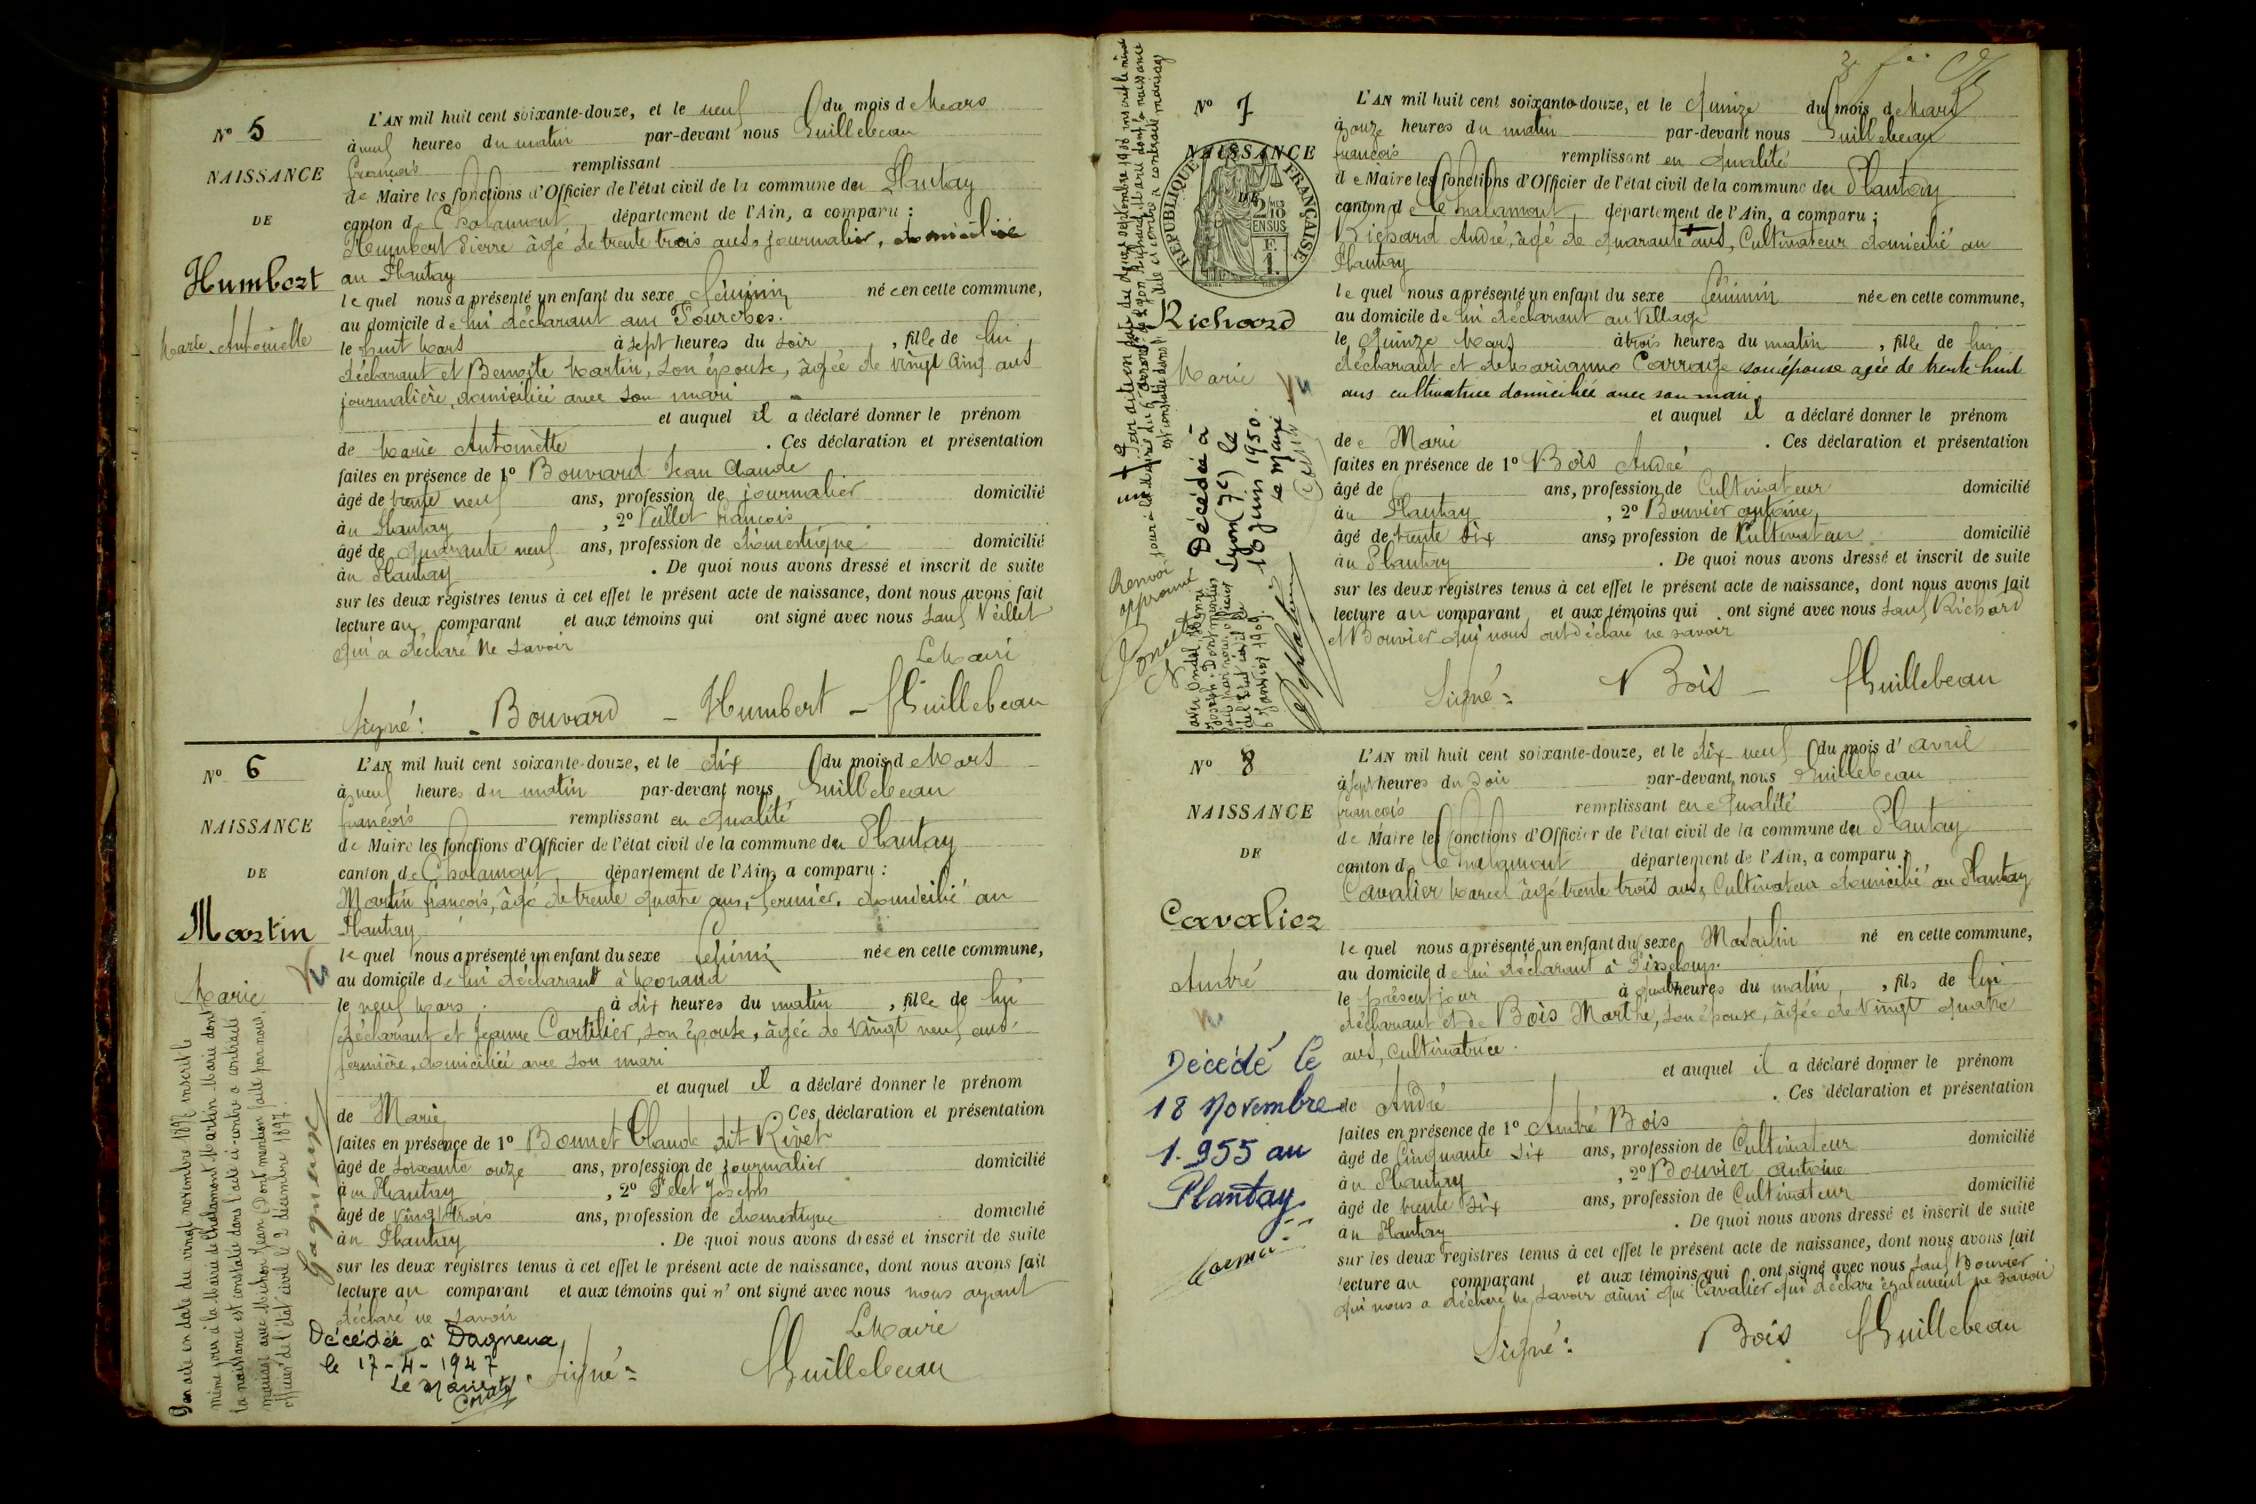 L'AN mil huit cent soixante-douze, et le neuf du mois de Mars
N° 5
à neuf heures du matin par-devant nous Guillebeau
NAISSANCE
françois remplissant
de Maire les fonctions d'Officier de l'état civil de la commune du Plantay
DE
canton de Chalamont département de l'Ain, a comparu :
Humbert Pierre âgé de trente trois ans, journalier, domicilié
Humbert
au Plantay
lequel nous a présenté un enfant du sexe féminin née en cette commune,
au domicile de lui déclarant aux Fourches.
Marie Antoinette
le huit Mars à sept heures du soir, fille de lui
déclarant et Benoite Martin, son épouse, âgée de vingt cinq ans
journalière, domiciliée avec son mari
et auquel il a déclaré donner le prénom
de Marie Antoinette. Ces déclaration et présentation
faites en présence de 1° Bouvard Jean Claude
âgé de trente neuf ans, profession de journalier domicilié
au Plantay, 2° Veillet françois
âgé de quarante neuf ans, profession de domestique domicilié
au Plantay. De quoi nous avons dressé et inscrit de suite
sur les deux registres tenus à cet effet le présent acte de naissance, dont nous avons fait
lecture au comparant et aux témoins qui ont signé avec nous sauf Veillet
qui a déclaré ne savoir
Le Maire
Signé : Bouvard - Humbert - f Guillebeau
L'AN mil huit cent soixante-douze, et le dix du mois de Mars
N° 6
à neuf heures du matin par-devant nous Guillebeau
NAISSANCE
françois remplissant en qualité
de Maire les fonctions d'Officier de l'état civil de la commune du Plantay
DE
canton de Chalamont département de l'Ain, a comparu :
Martin françois, âgé de trente quatre ans, fermier, domicilié au
Martin
Plantay
lequel nous a présenté un enfant du sexe féminin née en cette commune,
au domicile de lui déclarant à
Marie
le neuf Mars à dix heures du matin, fille de lui
déclarant et Jeanne Cartilier, son épouse, âgée de vingt neuf ans
fermière, domiciliée avec son mari
et auquel il a déclaré donner le prénom
de Marie Ces déclaration et présentation
faites en présence de 1° Bonnet Claude dit Rivet
âgé de soixante onze ans, profession de journalier domicilié
au Plantay, 2° Pelet Joseph
âgé de vingt trois ans, profession de domestique domicilié
au Plantay. De quoi nous avons dressé et inscrit de suite
sur les deux registres tenus à cet effet le présent acte de naissance, dont nous avons fait
lecture au comparant et aux témoins qui n'ont signé avec nous nous ayant
déclaré ne savoir
Le Maire
Signé : f Guillebeau
Décédée à Dagneux
le 17-4-1947
Le Maire
Par acte en date du vingt novembre 1897 inscrit le
même jour à la Mairie de Chalamont Martin Marie dont
la naissance est constatée dans l'acte ci-contre a contracté
mariage avec Michon Jean. Dont mention faite par nous,
officier de l'état civil le 2 décembre 1897.
Gagneux
L'AN mil huit cent soixante-douze, et le quinze du mois de Mars
N° 7
à onze heures du matin par-devant nous Guillebeau
NAISSANCE
françois remplissant en qualité
de Maire les fonctions d'Officier de l'état civil de la commune du Plantay
DE
RÉPUBLIQUE FRANÇAISE
canton de Chalamont, département de l'Ain, a comparu :
Richard André, âgé de quarante ans, Cultivateur domicilié au
Plantay
lequel nous a présenté un enfant du sexe féminin née en cette commune,
Richard
au domicile de lui déclarant au Village
le quinze Mars à trois heures du matin, fille de lui
Marie
déclarant et de Marianne Carrage son épouse agée de trente huit
ans cultivatrice domiciliée avec son mari.
et auquel il a déclaré donner le prénom
de Marie. Ces déclaration et présentation
faites en présence de 1° Bois André
âgé de ans, profession de Cultivateur domicilié
au Plantay, 2° Bouvier antoine
âgé de trente six ans, profession de Cultivateur domicilié
au Plantay. De quoi nous avons dressé et inscrit de suite
sur les deux registres tenus à cet effet le présent acte de naissance, dont nous avons fait
lecture au comparant et aux témoins qui ont signé avec nous sauf Richard
et Bouvier qui nous ont déclaré ne savoir
Signé : Bois - f Guillebeau
Décédée à
Lyon (7e) le
16 juin 1950.
Le Maire
Renvoi
approuvé
L'AN mil huit cent soixante-douze, et le dix neuf du mois d'avril
N° 8
à sept heures du soir par-devant nous Guillebeau
NAISSANCE
françois remplissant en qualité
de Maire les fonctions d'Officier de l'état civil de la commune du Plantay
DE
canton de Chalamont département de l'Ain, a comparu :
Cavalier Marcel âgé trente trois ans, Cultivateur domicilié au Plantay
Cavalier
lequel nous a présenté un enfant du sexe Masculin né en cette commune,
au domicile de lui déclarant à
André
le présent jour à quatre heures du matin, fils de lui
déclarant et de Bois Marthe, son épouse, âgée de vingt quatre
ans, cultivatrice.
et auquel il a déclaré donner le prénom
de André. Ces déclaration et présentation
faites en présence de 1° André Bois
âgé de Cinquante six ans, profession de Cultivateur domicilié
au Plantay, 2° Bouvier antoine
âgé de trente six ans, profession de Cultivateur domicilié
au Plantay. De quoi nous avons dressé et inscrit de suite
sur les deux registres tenus à cet effet le présent acte de naissance, dont nous avons fait
lecture au comparant et aux témoins qui ont signé avec nous sauf Bouvier
qui nous a déclaré ne savoir ainsi que Cavalier qui déclare également ne savoir
Signé : Bois f Guillebeau
Décédé le
18 Novembre
1.955 au
Plantay